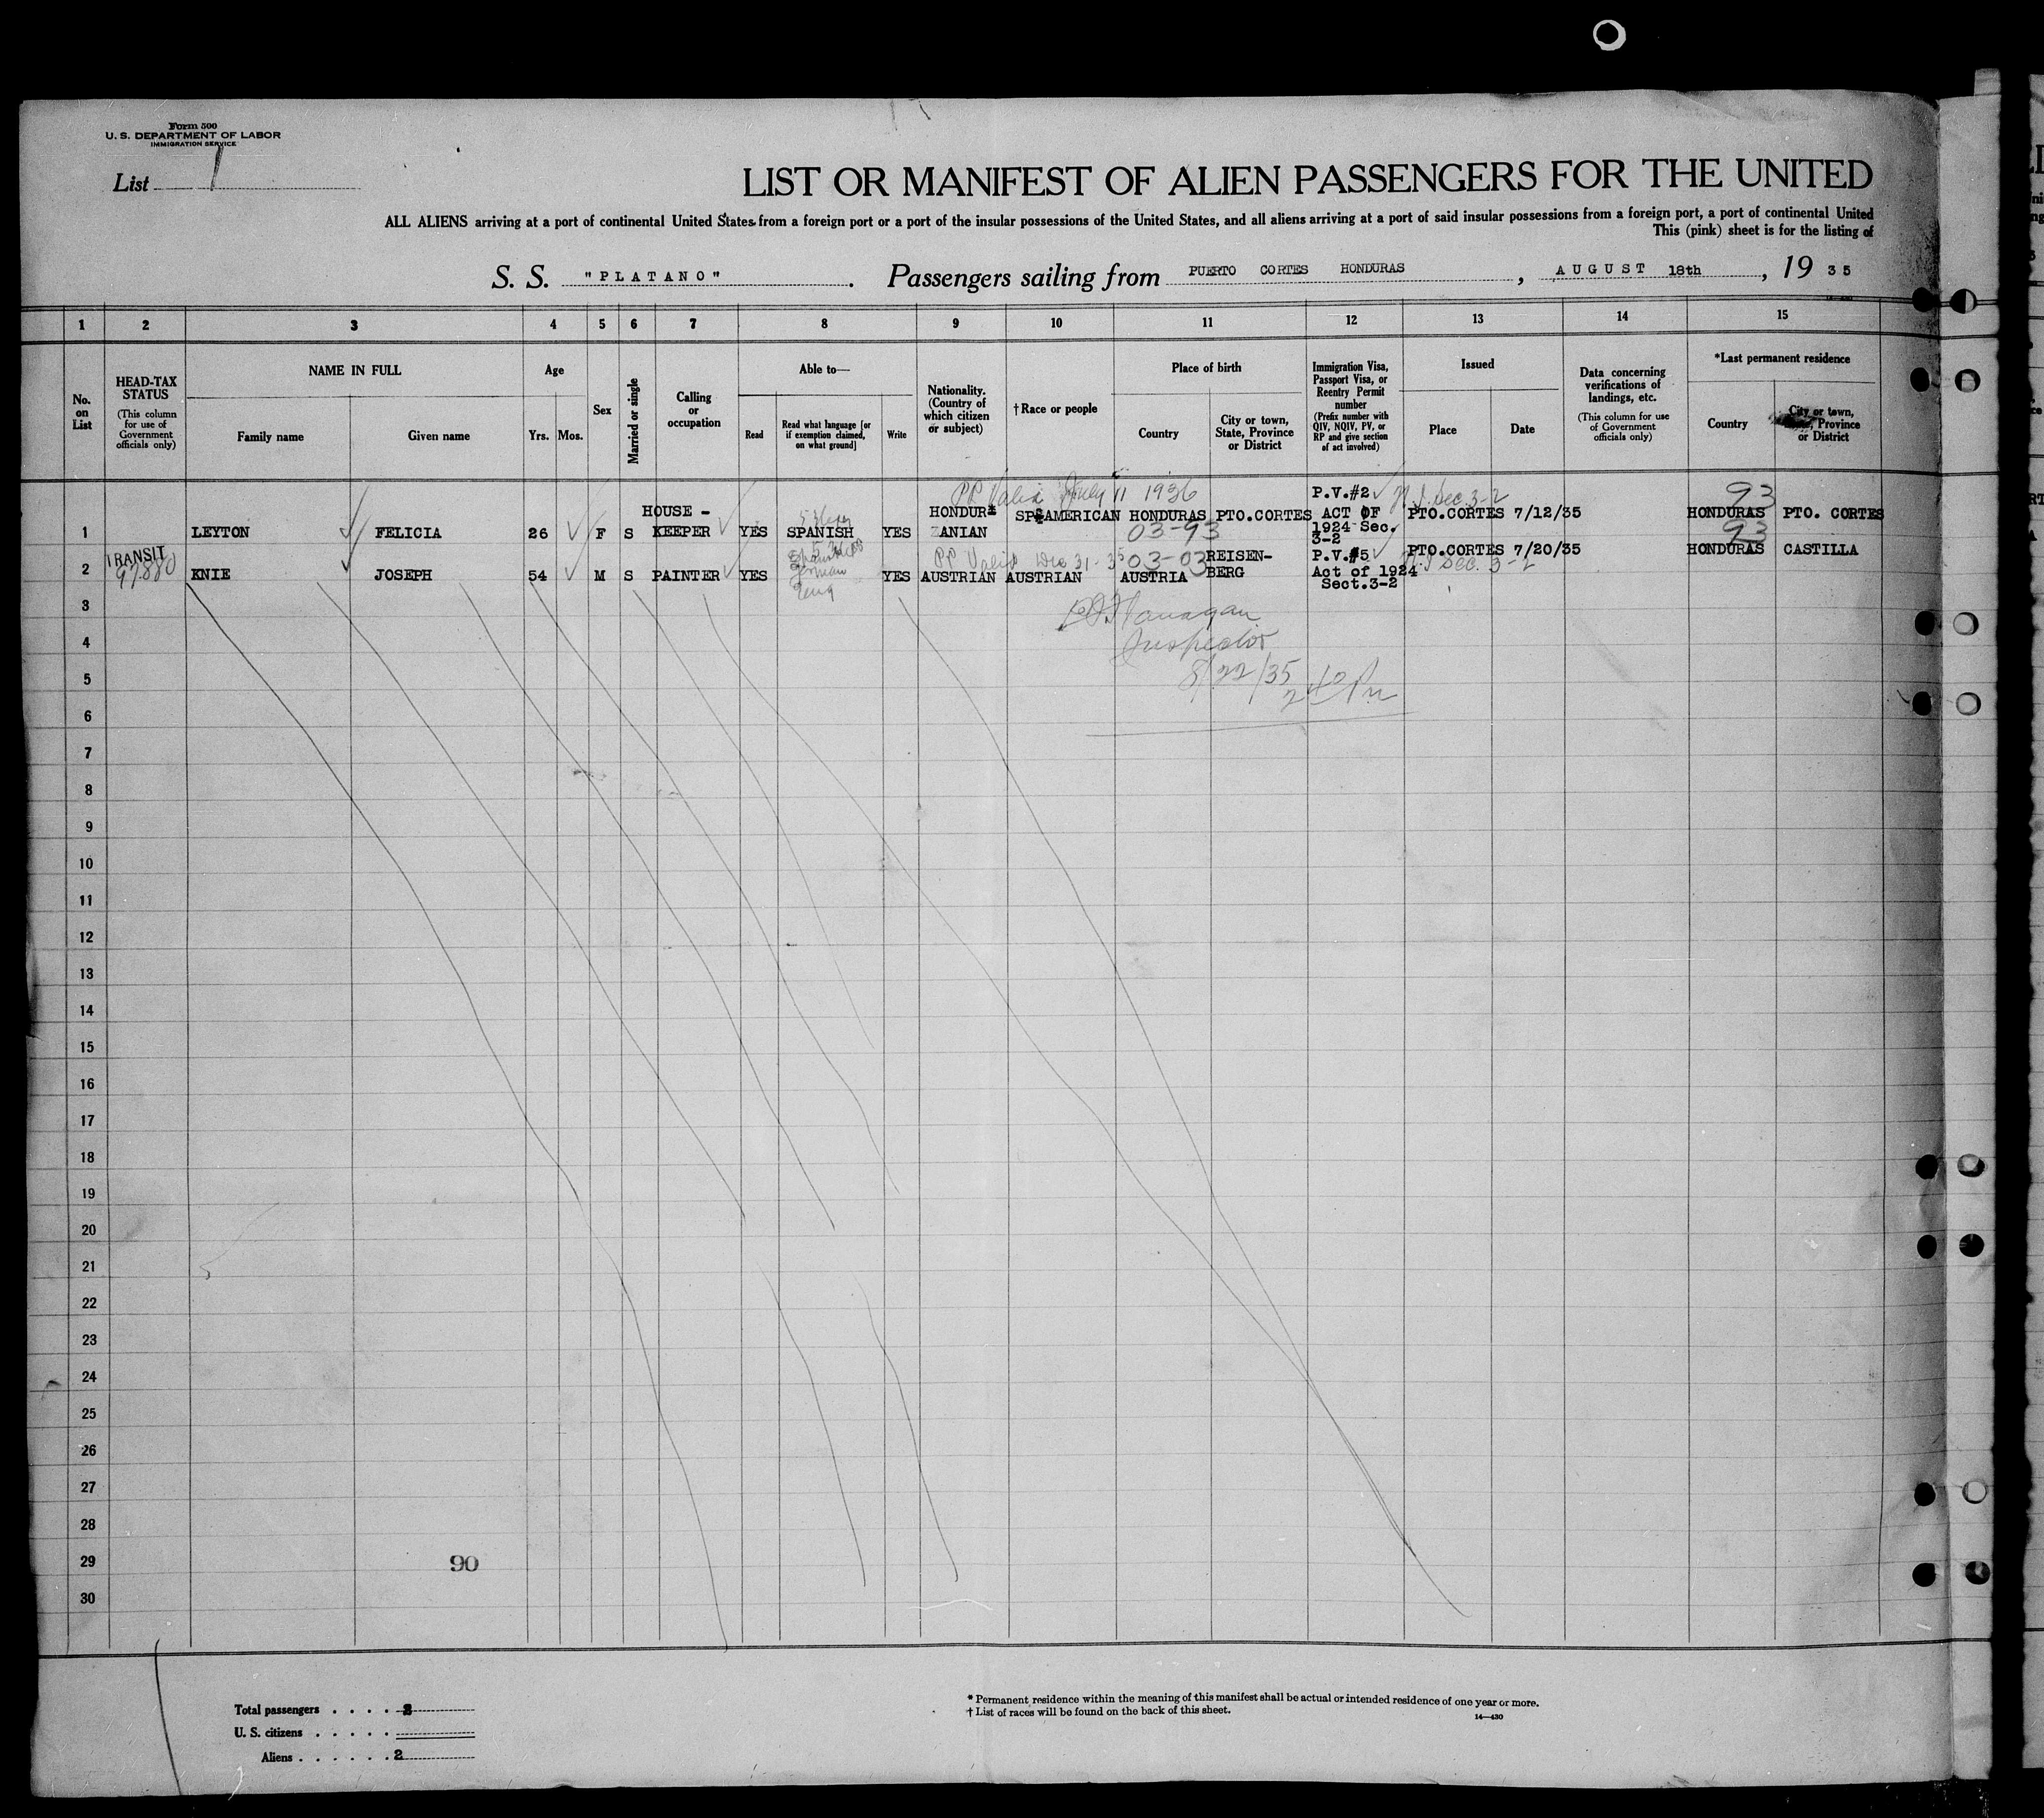 Form 500
U. S. DEPARTMENT OF LABOR
IMMIGRATION SERVICE
List 1
LIST OR MANIFEST OF ALIEN PASSENGERS FOR THE UNITED
ALL ALIENS arriving at a port of continental United States from a foreign port or a port of the insular possessions of the United States, and all aliens arriving at a port of said insular possessions from a foreign port, a port of continental United
This (pink) sheet is for the listing of
S. S. "PLATANO". Passengers sailing from PUERTO CORTES HONDURAS, AUGUST 18th, 19 35
1 2 3 4 5 6 7 8 9 10 11 12 13 14 15
No. on List
HEAD-TAX STATUS
(This column for use of Government officials only)
NAME IN FULL
Family name Given name
Age
Yrs. Mos.
Sex
Married or single
Calling or occupation
Able to—
Read
Read what language [or if exemption claimed, on what ground]
Write
Nationality. (Country of which citizen or subject)
† Race or people
Place of birth
Country
City or town, State, Province or District
Immigration Visa, Passport Visa, or Reentry Permit number
(Prefix number with QIV, NQIV, PV, or RP and give section of act involved)
Issued
Place Date
Data concerning verifications of landings, etc.
(This column for use of Government officials only)
*Last permanent residence
Country
City or town, State, Province or District
PP Valid July 11 1936 P.V.#2 Sec. 3-2 93
HOUSE - HONDUR SP AMERICAN HONDURAS PTO.CORTES ACT OF PTO.CORTES 7/12/35 HONDURAS PTO. CORTES
1 LEYTON FELICIA 26 F S KEEPER YES SPANISH YES ANIAN 03-93 1924 Sec. 93
3-2
TRANSIT Spanish PP Valid Dec 31-35 03-03 REISEN- P.V.#5 PTO.CORTES 7/20/35 HONDURAS CASTILLA
2 KNIE JOSEPH 54 M S PAINTER YES German YES AUSTRIAN AUSTRIAN AUSTRIA BERG Act of 1924 Sec. 3-2
Eng Sect.3-2
3 Flanagan
4 Inspector
5 8/22/35
240 Pm
6
7
8
9
10
11
12
13
14
15
16
17
18
19
20
21
22
23
24
25
26
27
28
29 90
30
Total passengers . . . . 2
U. S. citizens . . . . .
Aliens . . . . . . 2
* Permanent residence within the meaning of this manifest shall be actual or intended residence of one year or more.
† List of races will be found on the back of this sheet.
14—430